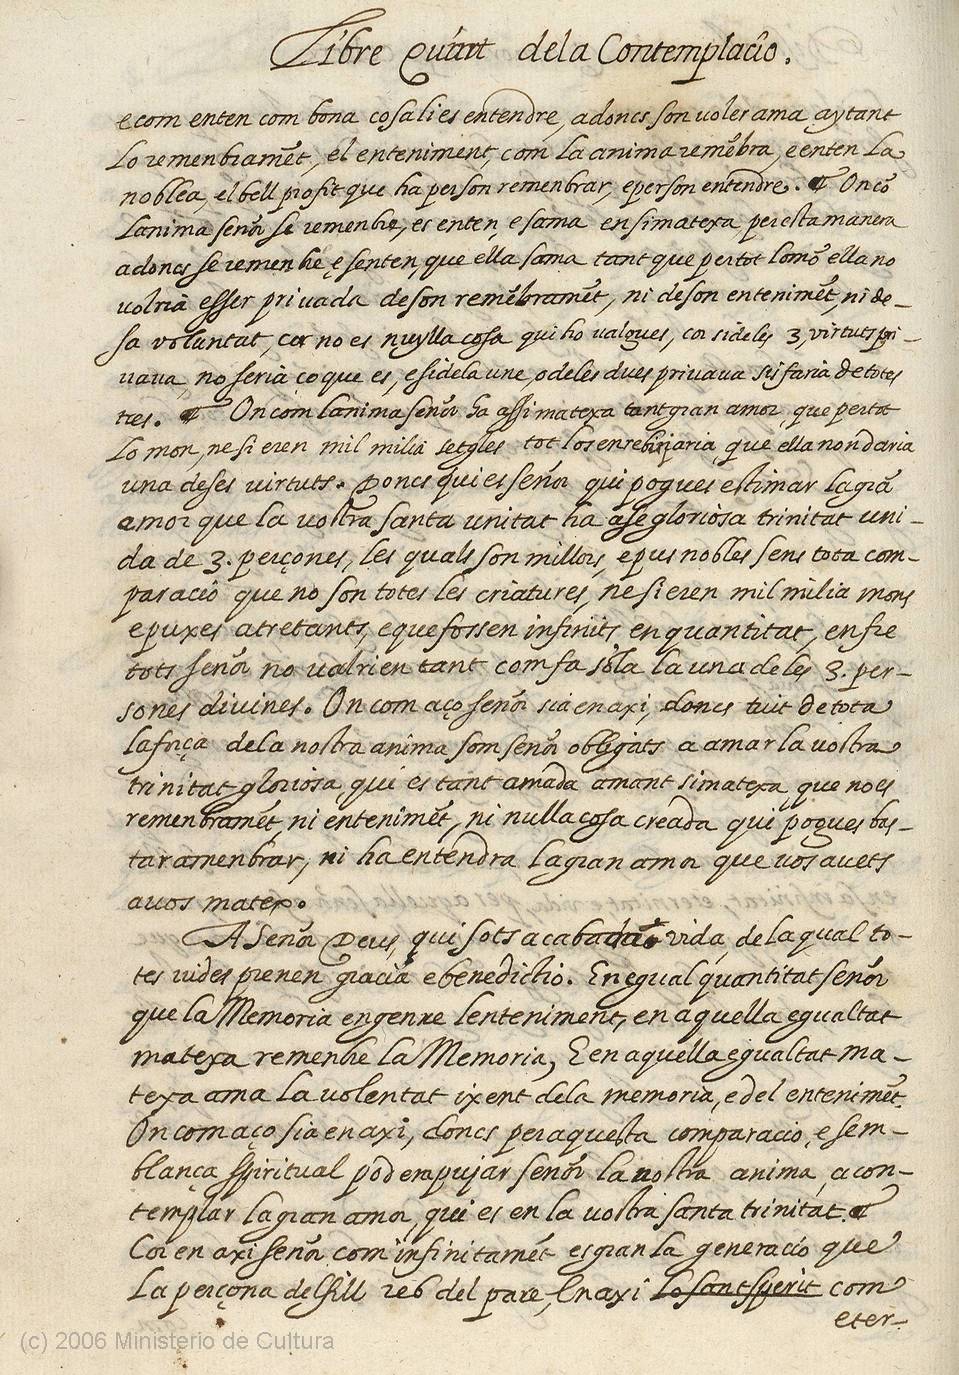 Libre Quint dela Contemplacio.
e com enten com bona cosa li es entendre, adoncs son voler ama aytant
Lo remenbramēt, el enteniment, com la anima remēbra, e enten La
noblea, el bell profit que ha per son remenbrar, e per son entendre. ¶ On cō
Lanima señor se remenbre, es enten, e sama en simatexa, per esta manera
adoncs se remenbre, e senten, que ella sama tant que per tot lo mō ella no
volria esser privada de son remēbramēt, ni de son entenimēt, ni de-
sa voluntat, car no es nuylla cosa qui ho valgues, cor si deles 3, virtuts pri-
vava, no seria ço que es, e si dela une, o deles dues privava sis faria de totes
tres. ¶ On com lanima señor ha assi matexa tant gran amor, que per tot
Lo mon, ne si eren mil milia setgles tot los enrebiaria, que ella non daria
una de ses virtuts. Doncs qui es señor qui pogues estimar la grā
amor que la vostra santa unitat ha a se gloriosa trinitat uni-
da de 3. perçones, les quals son millors, e pus nobles sens tota com-
paracio que no son totes les criatures, ne si eren mil milia mons
e puxes atretants, e que fossen infinits en quantitat, enfre
tots señor no valrien tant com fa sola la una de les 3. per-
sones divines. On com aço señor sia en axi, doncs tuit de tota
la força dela nostra anima som señor obligats a amar la vostra
trinitat gloriosa, qui es tant amada amant si matexa, que no es
remenbramēt, ni entenimēt, ni nulla cosa creada qui pogues bas-
tar amenbrar, ni ha entendra la gran amor que vos avets
a vos matex.
A Señor Deus, qui sots acabada vida, de la qual to-
tes vides prenen gracia e benedictio. En egual quantitat señor
que la Memoria engenre lenteniment, en aquella egualtat
matexa remenbre la Memoria, E en aquella egualtat ma-
texa ama la volentat ixent dela memoria, e del entenimēt.
On com aço sia en axi, doncs per aquesta comparacio, e sem-
blança spiritual podem pujar señor la nostra anima, a con-
templar la gran amor, qui es en la vostra santa trinitat. ¶
Cor en axi señor com infinitamēt es gran la generacio que
La perçona del fill reb del pare, En axi lo sant sperit com
eter-
(c) 2006 Ministerio de Cultura